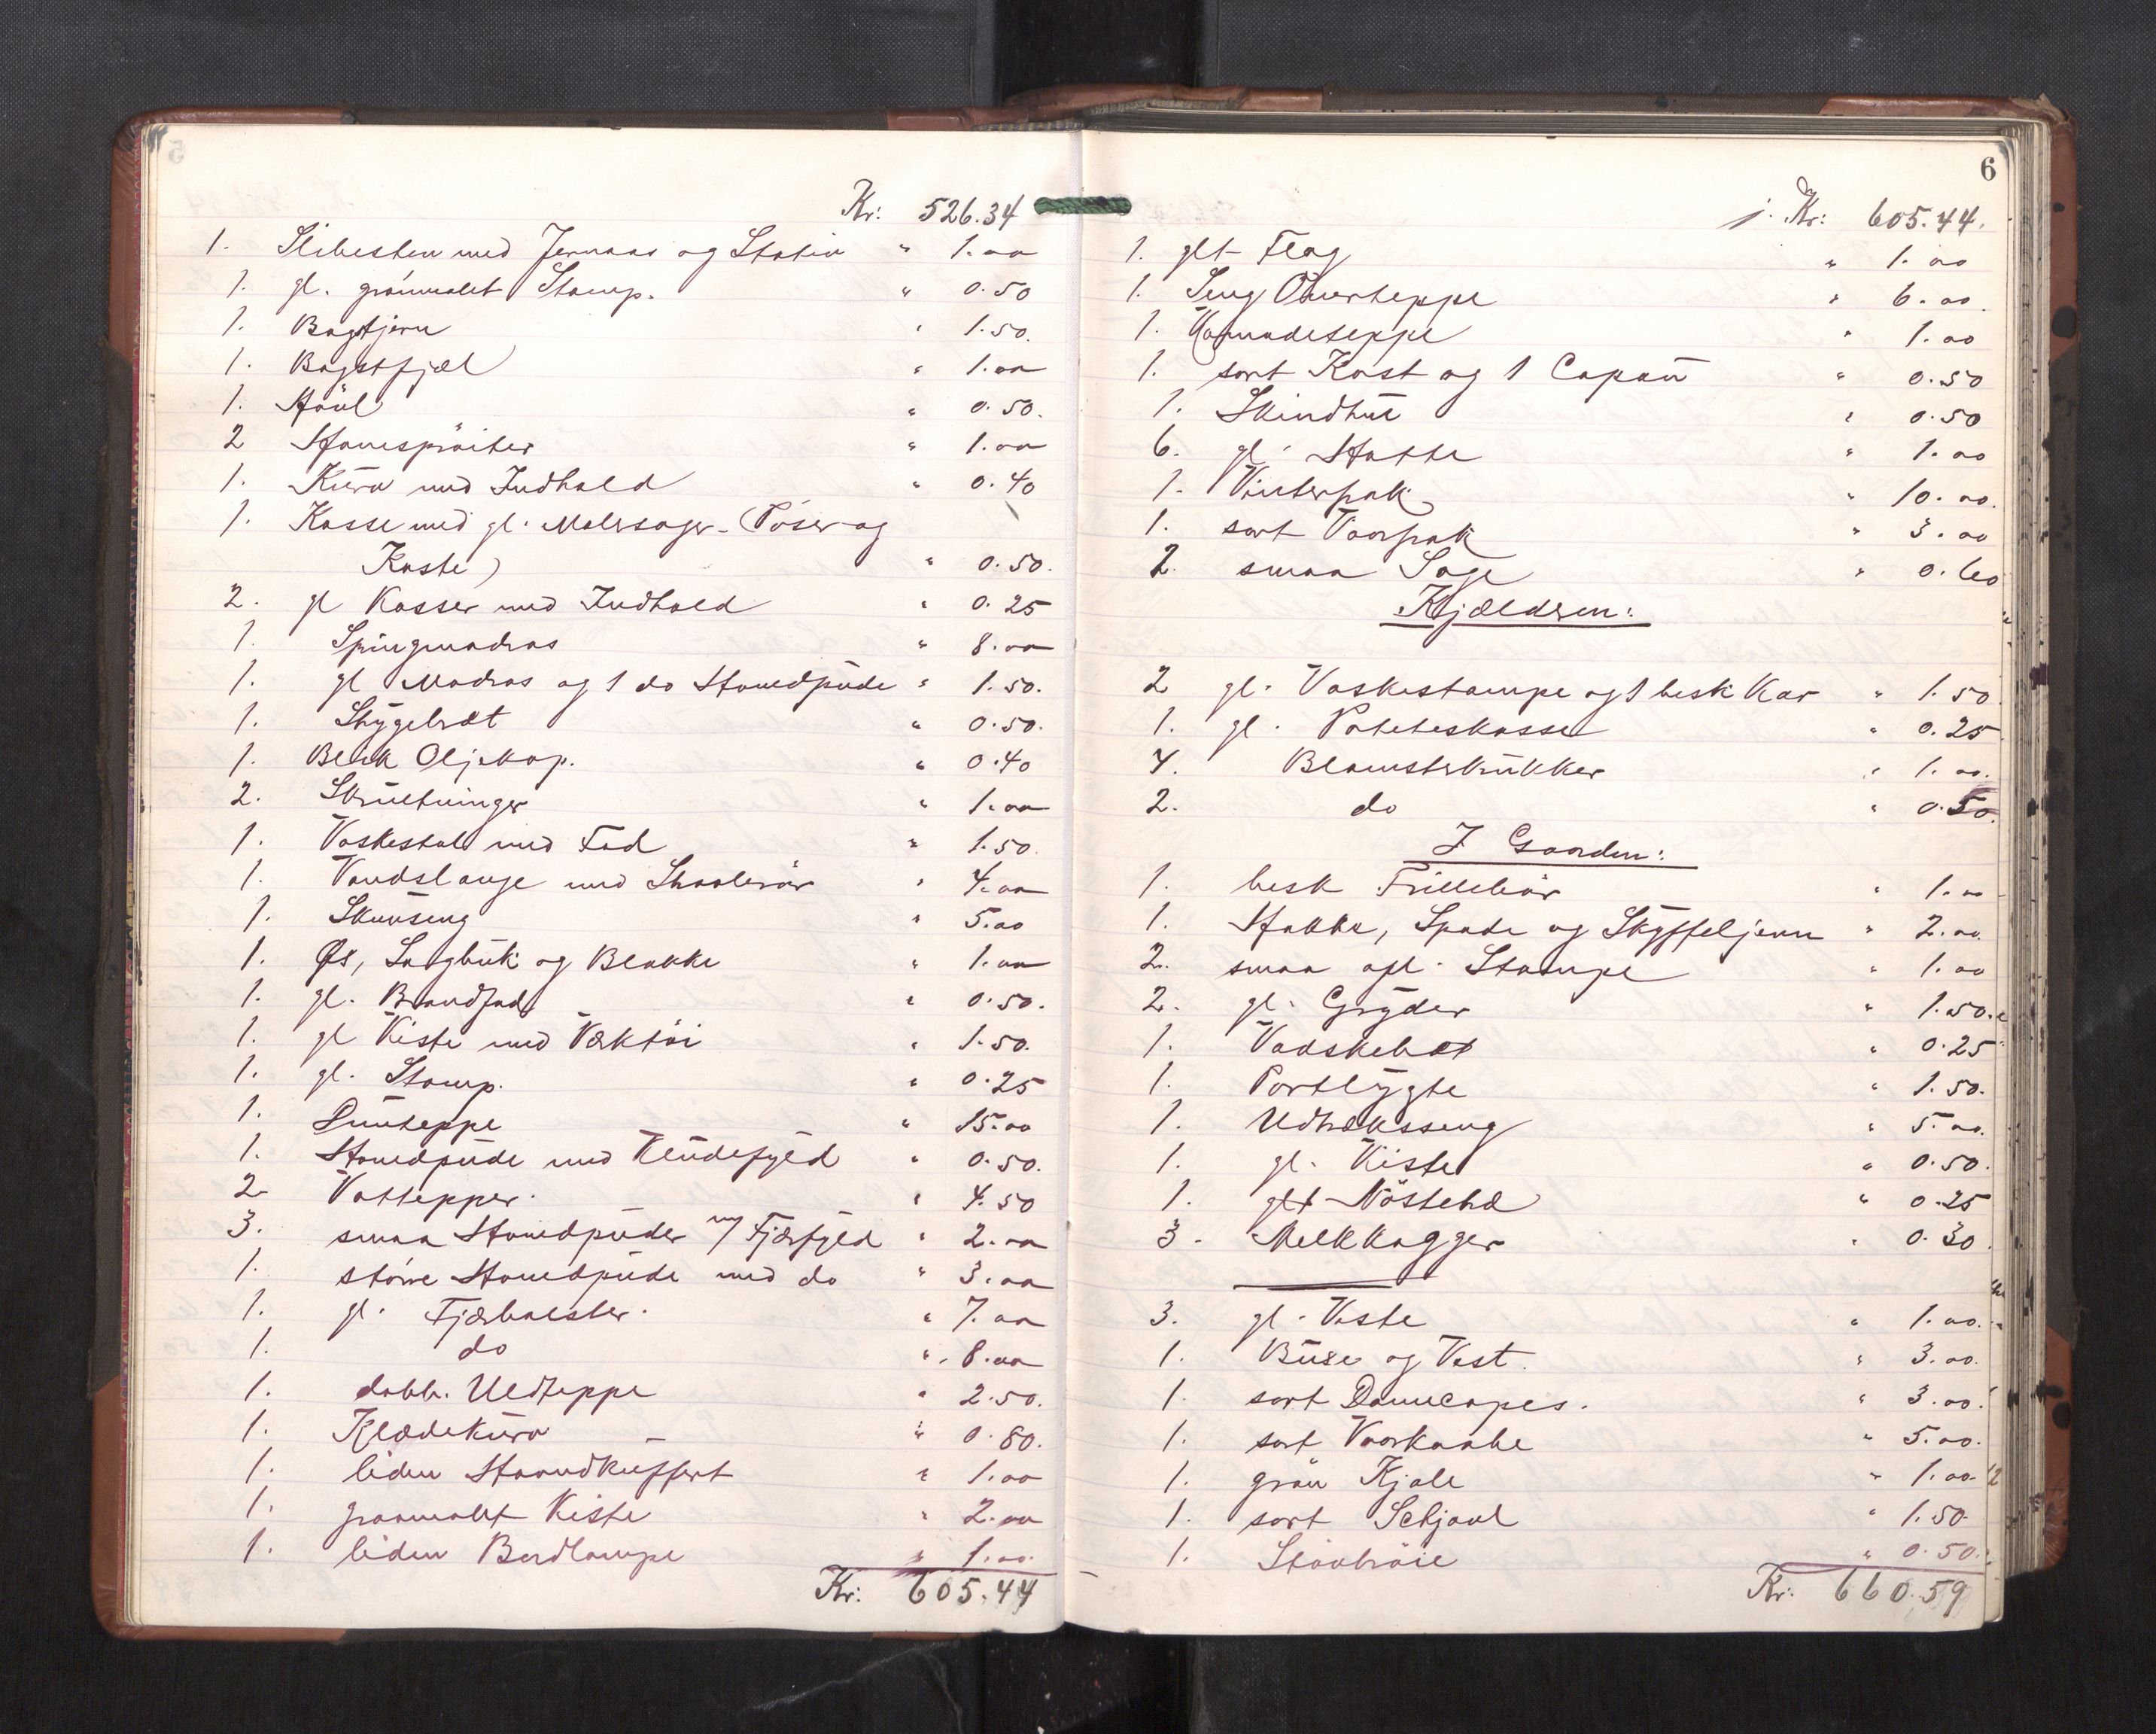 Kr: 526.34
1. Slibesten med Jernaas og Stativ " 1.00
1. gl. grönmalet Stamp. " 0.50
1. Bagstjern " 1.50.
1. Bagstfjæl " 1.00
1. Hövl " 0.50.
2 Havespröiter " 1.00
1. Kurv med Indhold " 0.40
1. Kasse med gl. Malersager. (Poser og
Koste) " 0.50.
2. gl Kasser med Indhold " 0.25
1. Springmadras " 8.00
1. gl Madras og 1 do Hovedpude " 1.50.
1. Strygebræt " 0.50.
1. Blik Oljekop. " 0.40
2. Skruetvinger " 1.00
1. Vaskestol med Fad " 1.50.
1. Vandslange med Straalerör " 4.00
1. Skuvseng " 5.00
1. Øs, Sagbuk og Blakke " 1.00
1. gl. Brandfad " 0.50.
1. gl Kiste med Værktöi " 1.50.
1. gl. Stamp. " 0.25
1. Dunteppe " 15.00
1. Hovedpude med Kludefyld " 0.50.
2 Vattepper. " 4.50
3. smaa Hovedpuder m/ Fjærfyld " 2.00
1. större Hovedpude med do " 3.00
1. gl. Fjærbolster. " 7.00
1. do " 8.00
1. dobb. Uldteppe " 2.50.
1. Klædekurv " 0.80.
1. liden Haandkuffert " 1.00
1. graamalet Kiste " 2.00
1. liden Bordlampe " 1.00.
Kr: 605.44
6
Kr: 605.44.
1. glt Flag " 1.00
1. Seng Overteppe " 6.00.
1. teppe " 1.00
1. sort Kast og 1 Capou " 0.50
1. Skindhue " 0.50
6. gl. Hatte " 1.00
1. Vinterfrak " 10.00.
1. sort Vaarfrak " 3.00
2. smaa Sage " 0.60
Kjælderen:
2 gl. Vaskestampe og 1 besk Kar " 1.50
1. gl. Poteteskasse " 0.25
4. Blomsterkrukker " 1.00.
2. do " 0.50.
I Gaarden:
1. besk Trillebör " 1.00
1. Hakke, Spade og Skyffeljern " 2.00.
2. smaa afl. Stampe " 1.00
2. gl. Gryder " 1.50.
1. Vadskebræt " 0.25
1. Portlygte " 1.50.
1. Udtræksseng " 5.00.
1. gl. Kiste " 0.50.
1. glt Nöstetræ " 0.25
3. Melkkagger " 0.30.
3. gl. Veste " 1.00.
1. Buxe og Vest. " 3.00.
1. sort Damecapes. " 3.00.
1. sort Vaarkaabe " 5.00.
1. grön Kjole " 1.00
1. sort Schjavl " 1.50
1. Stövtröie " 0.50.
Kr: 660.59